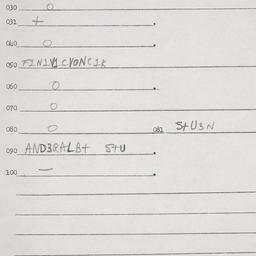 030 O
031 +
040 O
050 FINIVICVONCIK
060 O
070 O
080 O 081 StU3N
090 AND3RALBt StU
100 —